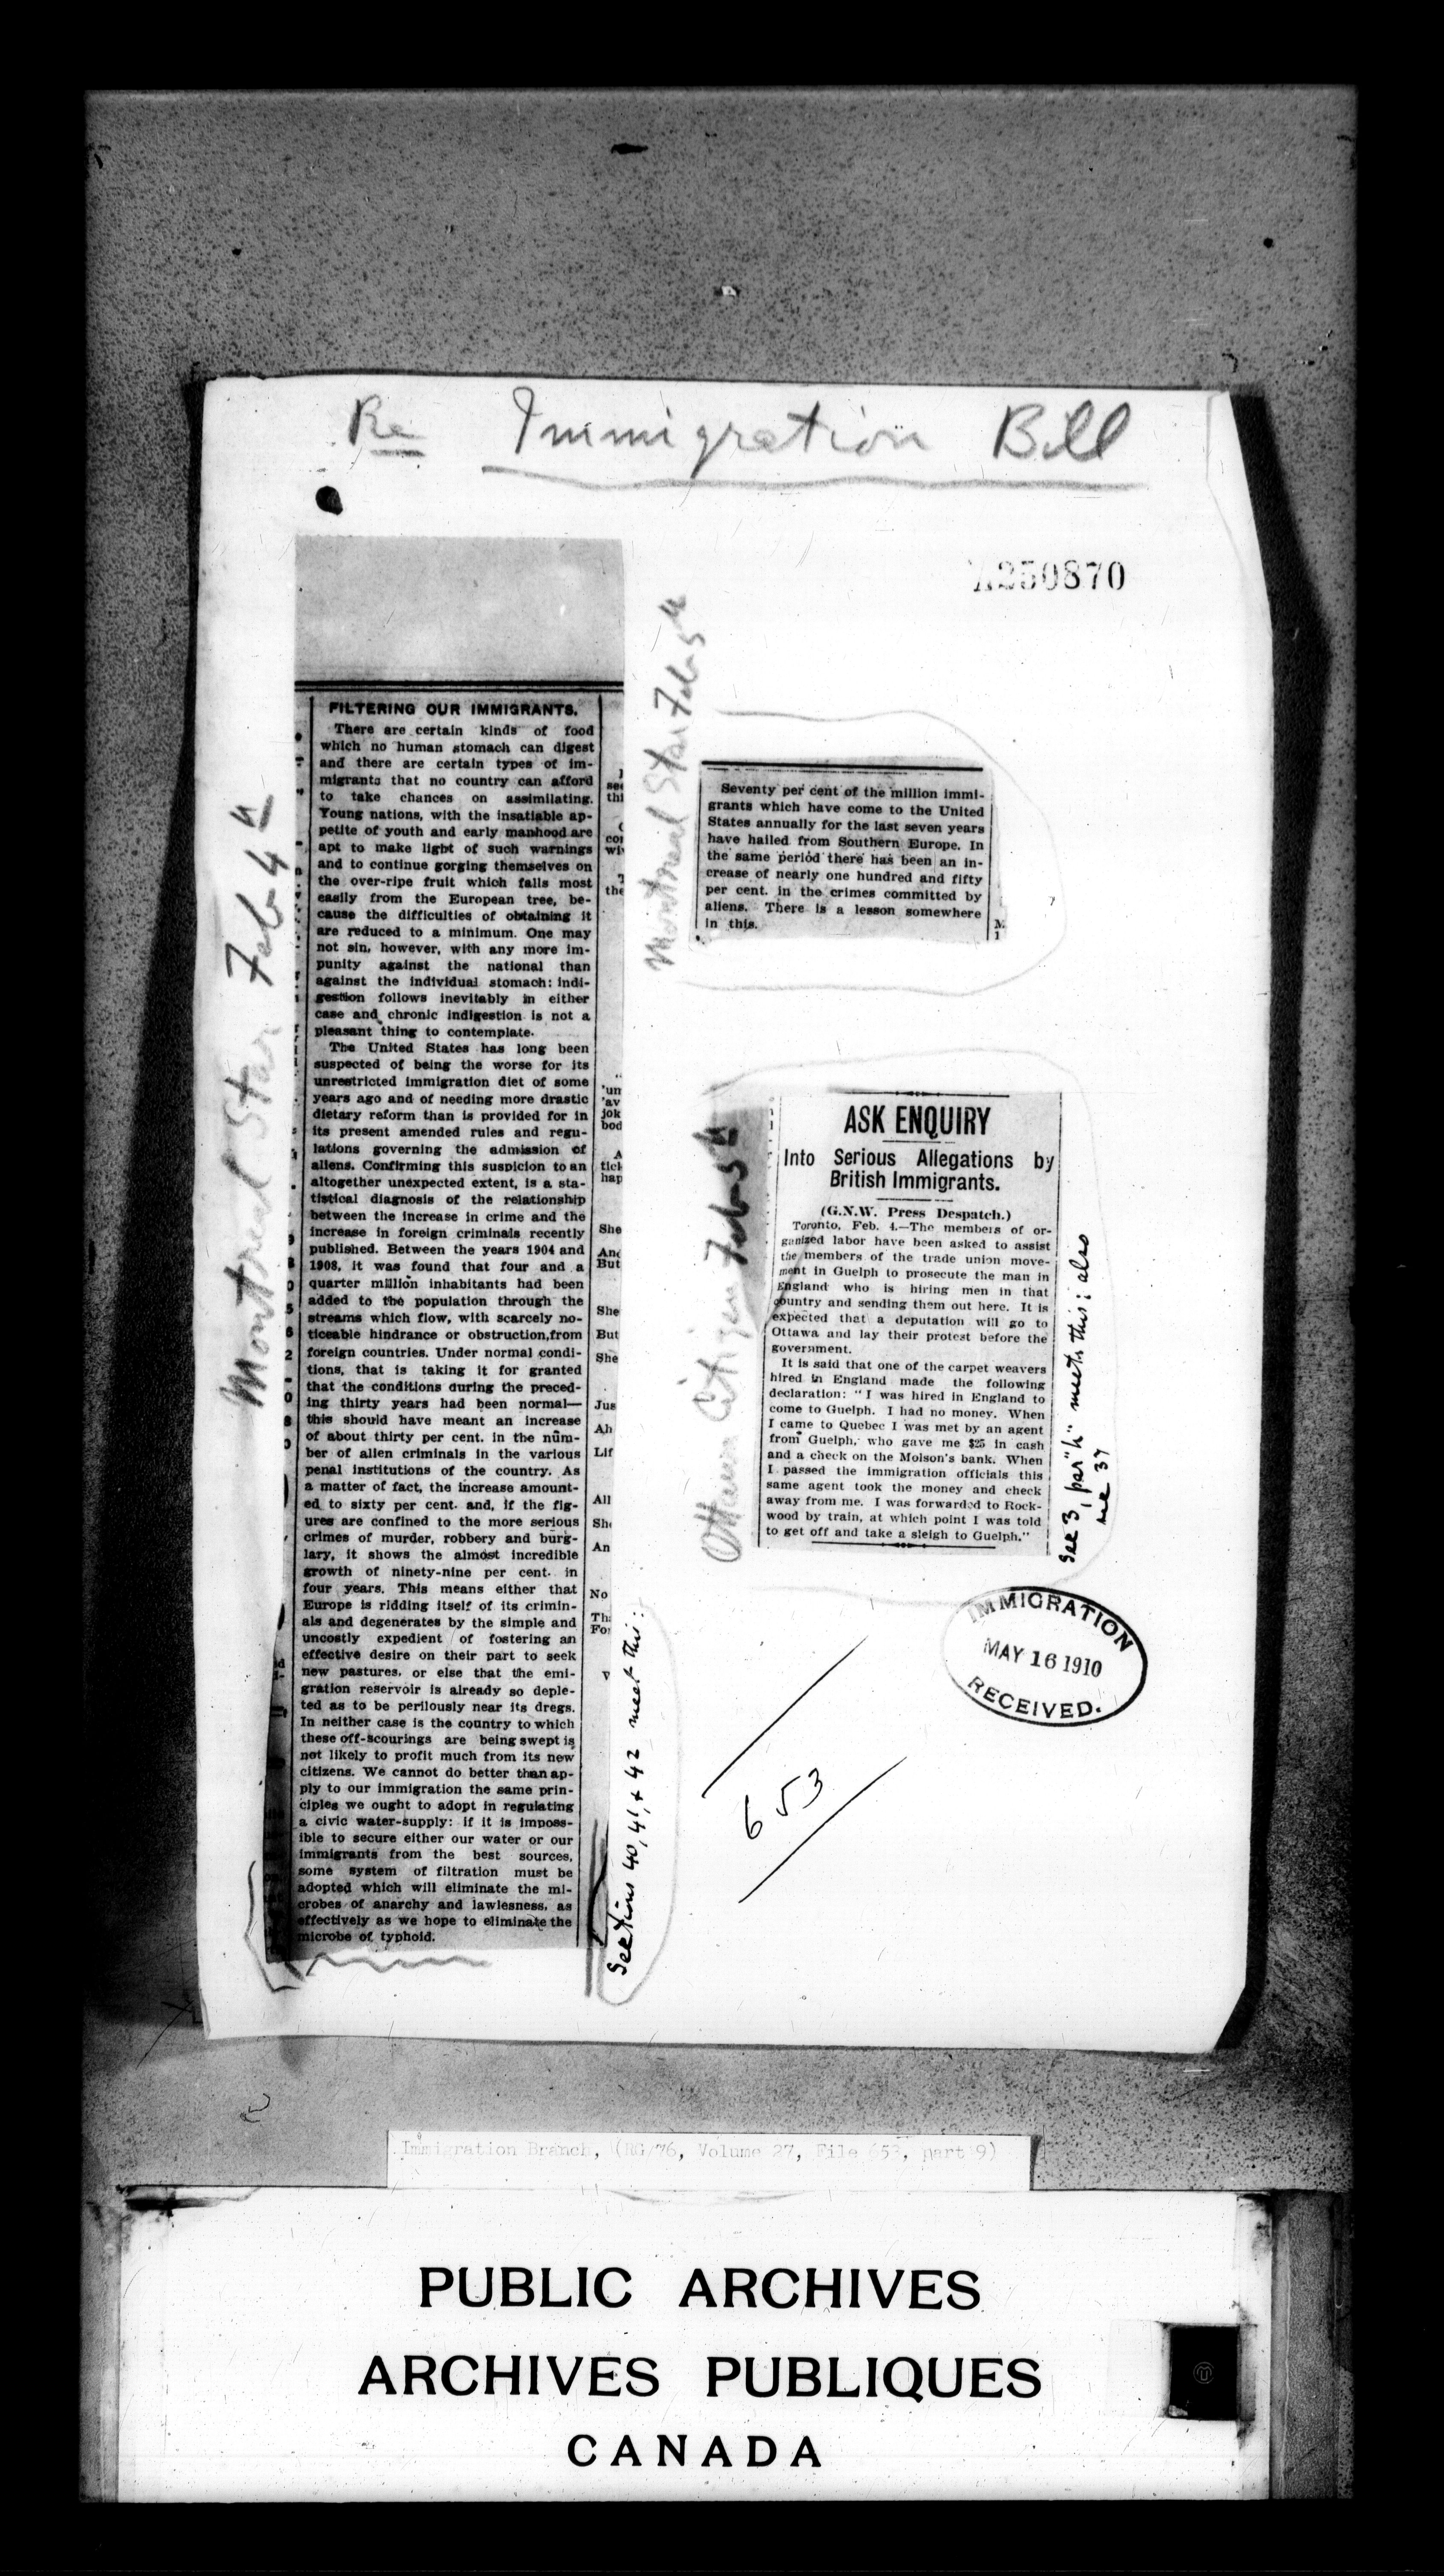 Re Immigration Bill
A250870
Montreal Star Feb 4th
FILTERING OUR IMMIGRANTS.
There are certain kinds of food
which no human stomach can digest
and there are certain types of im-
migrants that no country can afford
to take chances on assimilating.
Young nations, with the insatiable ap-
petite of youth and early manhood are
apt to make light of such warnings
and to continue gorging themselves on
the over-ripe fruit which falls most
easily from the European tree, be-
cause the difficulties of obtaining it
are reduced to a minimum. One may
not sin, however, with any more im-
punity against the national than
against the individual stomach: indi-
gestion follows inevitably in either
case and chronic indigestion is not a
pleasant thing to contemplate.
The United States has long been
suspected of being the worse for its
unrestricted immigration diet of some
years ago and of needing more drastic
dietary reform than is provided for in
its present amended rules and regu-
lations governing the admission of
aliens. Confirming this suspicion to an
altogether unexpected extent, is a sta-
tistical diagnosis of the relationship
between the increase in crime and the
increase in foreign criminals recently
published. Between the years 1904 and
1908, it was found that four and a
quarter million inhabitants had been
added to the population through the
streams which flow, with scarcely no-
ticeable hindrance or obstruction,from
foreign countries. Under normal condi-
tions, that is taking it for granted
that the conditions during the preced-
ing thirty years had been normal—
this should have meant an increase
of about thirty per cent. in the num-
ber of alien criminals in the various
penal institutions of the country. As
a matter of fact, the increase amount-
ed to sixty per cent. and, if the fig-
ures are confined to the more serious
crimes of murder, robbery and burg-
lary, it shows the almost incredible
growth of ninety-nine per cent. in
four years. This means either that
Europe is ridding itself of its crimin-
als and degenerates by the simple and
uncostly expedient of fostering an
effective desire on their part to seek
new pastures, or else that the emi-
gration reservoir is already so deple-
ted as to be perilously near its dregs.
In neither case is the country to which
these off-scourings are being swept is
not likely to profit much from its new
citizens. We cannot do better than ap-
ply to our immigration the same prin-
ciples we ought to adopt in regulating
a civic water-supply: if it is imposs-
ible to secure either our water or our
immigrants from the best sources,
some system of filtration must be
adopted which will eliminate the mi-
crobes of anarchy and lawlesness, as
effectively as we hope to eliminate the
microbe of typhoid.
Sections 40, 41, + 42 meet this:
Montreal Star Feb 5th
Seventy per cent of the million immi-
grants which have come to the United
States annually for the last seven years
have hailed from Southern Europe. In
the same period there has been an in-
crease of nearly one hundred and fifty
per cent. in the crimes committed by
aliens. There is a lesson somewhere
in this.
Ottawa Citizen Feb 5th
ASK ENQUIRY
Into Serious Allegations by
British Immigrants.
(G.N.W. Press Despatch.)
Toronto, Feb. 4.—The members of or-
ganized labor have been asked to assist
the members of the trade union move-
ment in Guelph to prosecute the man in
England who is hiring men in that
country and sending them out here. It is
expected that a deputation will go to
Ottawa and lay their protest before the
government.
It is said that one of the carpet weavers
hired in England made the following
declaration: "I was hired in England to
come to Guelph. I had no money. When
I came to Quebec I was met by an agent
from Guelph, who gave me $25 in cash
and a check on the Molson's bank. When
I passed the immigration officials this
same agent took the money and check
away from me. I was forwarded to Rock-
wood by train, at which point I was told
to get off and take a sleigh to Guelph."
Sec 3, par "h" meets this; also
sec 37
IMMIGRATION
MAY 16 1910
RECEIVED.
653
Immigration Branch, (RG 76, Volume 27, File 653, part 9)
PUBLIC ARCHIVES
ARCHIVES PUBLIQUES
CANADA